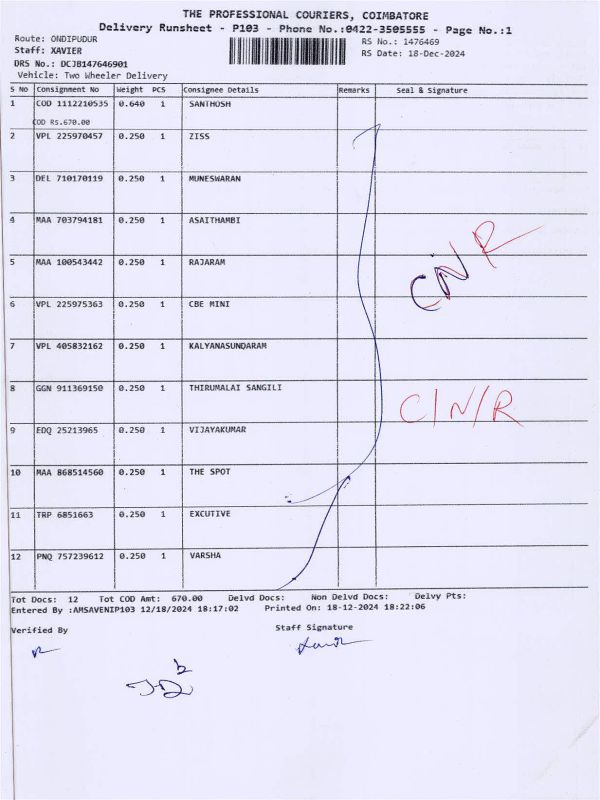 THE PROFESSIONAL COURIERS, COIMBATORE
Delivery Runsheet - P103 - Phone No.:0422-3505555 - Page No.:1
Route: ONDIPUDUR
RS No.: 1476469
Staff: XAVIER
RS Date: 18-Dec-2024
DRS No.: DCJB147646901
Vehicle: Two Wheeler Delivery
S No Consignment No Weight PCS Consignee Details Remarks Seal & Signature
1 COD 1112210535 0.640 1 SANTHOSH
COD Rs.670.00
2 VPL 225970457 0.250 1 ZISS
3 DEL 710170119 0.250 1 MUNESWARAN
4 MAA 703794181 0.250 1 ASAITHAMBI
C/N/R
5 MAA 100543442 0.250 1 RAJARAM
6 VPL 225975363 0.250 1 CBE MINI
7 VPL 405832162 0.250 1 KALYANASUNDARAM
8 GGN 911369150 0.250 1 THIRUMALAI SANGILI
C/N/R
9 EDQ 25213965 0.250 1 VIJAYAKUMAR
10 MAA 868514560 0.250 1 THE SPOT
11 TRP 6851663 0.250 1 EXCUTIVE
12 PNQ 757239612 0.250 1 VARSHA
Tot Docs: 12 Tot COD Amt: 670.00 Delvd Docs: Non Delvd Docs: Delvy Pts:
Entered By :AMSAVENIP103 12/18/2024 18:17:02 Printed On: 18-12-2024 18:22:06
Verified By
Staff Signature